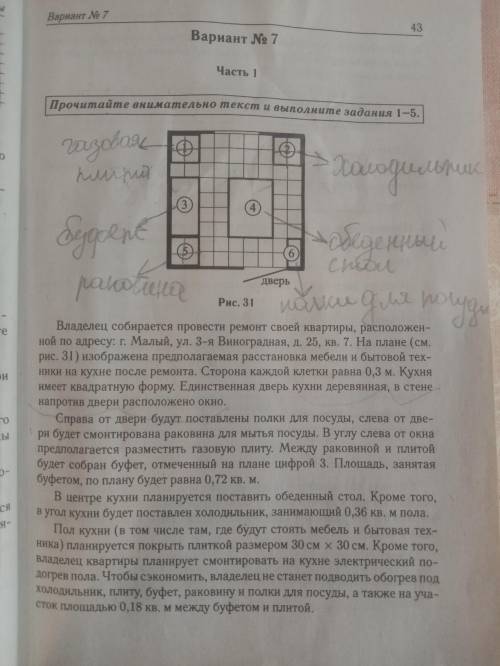 Вариант № 7
43
Вариант № 7
Часть 1
Прочитайте внимательно текст и выполните задания 1–5.
газовая
плита
1
2
холодильник
буфет
3
4
обеденный
стол
раковина
5
6
дверь
Рис. 31
полки для посуды
Владелец собирается провести ремонт своей квартиры, расположен-
ной по адресу: г. Малый, ул. 3-я Виноградная, д. 25, кв. 7. На плане (см.
рис. 31) изображена предполагаемая расстановка мебели и бытовой тех-
ники на кухне после ремонта. Сторона каждой клетки равна 0,3 м. Кухня
имеет квадратную форму. Единственная дверь кухни деревянная, в стене
напротив двери расположено окно.
Справа от двери будут поставлены полки для посуды, слева от две-
ри будет смонтирована раковина для мытья посуды. В углу слева от окна
предполагается разместить газовую плиту. Между раковиной и плитой
будет собран буфет, отмеченный на плане цифрой 3. Площадь, занятая
буфетом, по плану будет равна 0,72 кв. м.
В центре кухни планируется поставить обеденный стол. Кроме того,
в угол кухни будет поставлен холодильник, занимающий 0,36 кв. м пола.
Пол кухни (в том числе там, где будут стоять мебель и бытовая тех-
ника) планируется покрыть плиткой размером 30 см × 30 см. Кроме того,
владелец квартиры планирует смонтировать на кухне электрический по-
догрев пола. Чтобы сэкономить, владелец не станет подводить обогрев под
холодильник, плиту, буфет, раковину и полки для посуды, а также на уча-
сток площадью 0,18 кв. м между буфетом и плитой.